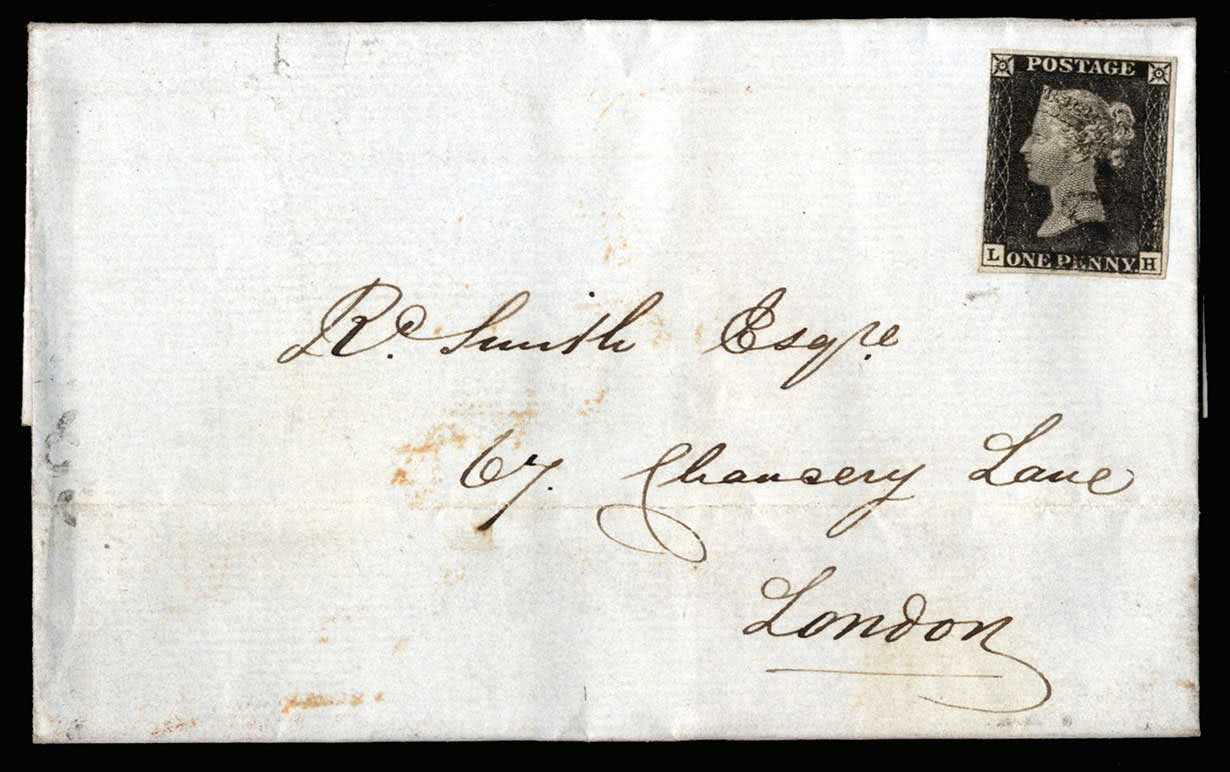 POSTAGE
L ONE PENNY H
Rd. Smith Esqre.
67. Chancery Lane
London